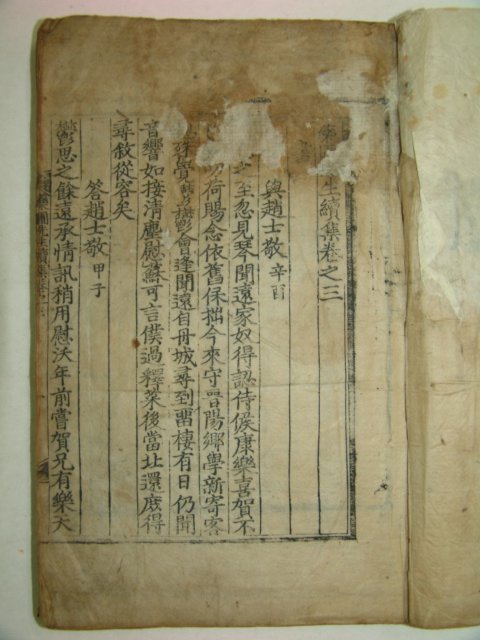 生續集卷之三
與趙士敬 辛酉
之至忽見琴聞遠家奴得認侍候康樂喜賀不
切荷賜念依舊保拙今來守晉陽鄉學新寄客
殊覺鬱會逢聞遠自丹城尋到畱棲有日仍聞
音響如接淸塵慰蘇可言僕過釋菜後當北還庶得
尋敘從容矣
答趙士敬 甲子
鬱思之餘遠承情訊稍用慰沃年前嘗賀兄有樂天
先生續集卷之三